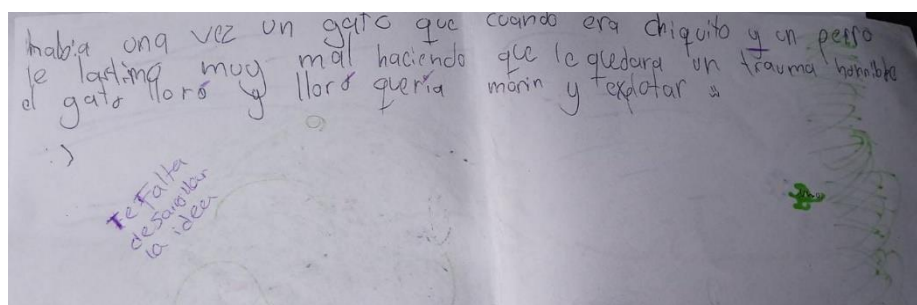 había una vez un gato que cuando era chiquito y un perro
le lastimo muy mal haciendo que le quedara un trauma horrible
el gato lloró y lloró quería morir y explotar
:)
Te Falta
desarollar
la idea